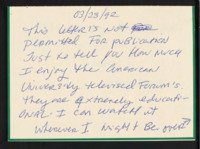 03/28/92
This letter is not
permitted for publication
Just to tell you How much
I enjoy the American
University televised Forum's.
They are extremely educati-
onal. I can watch it
wherever I might Be over